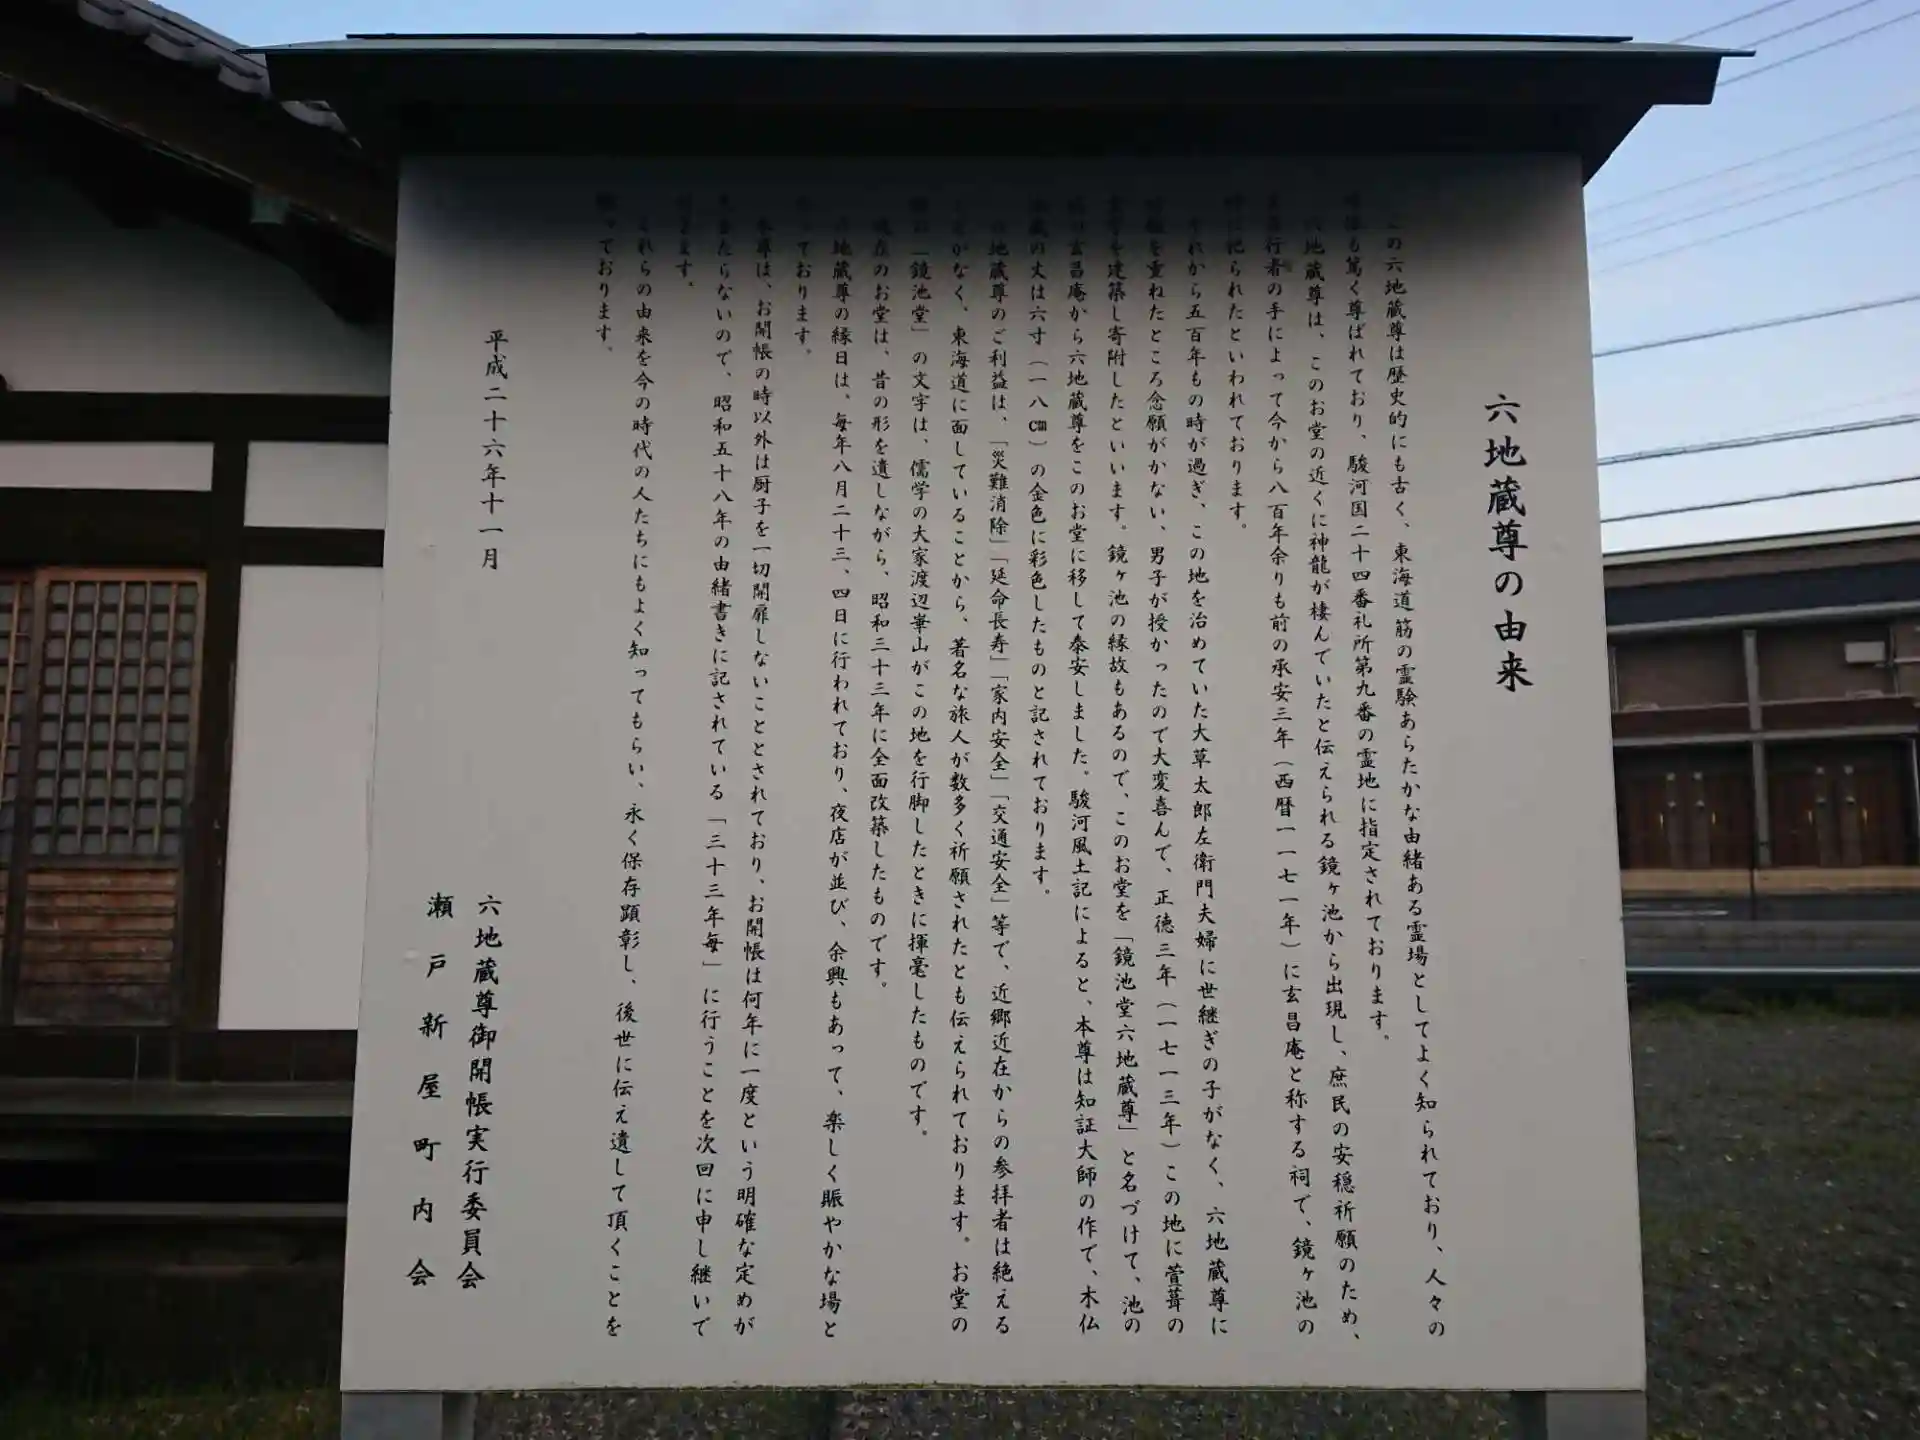 六地蔵尊の由来
の六地蔵尊は歴史的にも古く、東海道筋の霊験あらたかな由緒ある霊場としてよく知られており、人々の
も篤く尊ばれており、駿河国二十四番礼所第九番の霊地に指定されております。
地蔵尊は、このお堂の近くに神龍が棲んでいたと伝えられる鏡ヶ池から出現し、庶民の安穏祈願のため、
行者の手によって今から八百年余りも前の承安三年（西暦一一七一年）に玄昌庵と称する祠で、鏡ヶ池の
祀られたといわれております。
それから五百年もの時が過ぎ、この地を治めていた大草太郎左衛門夫婦に世継ぎの子がなく、六地蔵尊に
を重ねたところ念願がかない、男子が授かったので大変喜んで、正徳三年（一七一三年）この地に萱葺の
を建築し寄附したといいます。鏡ヶ池の縁故もあるので、このお堂を「鏡池堂六地蔵尊」と名づけて、池の
玄昌庵から六地蔵尊をこのお堂に移して泰安しました。駿河風土記によると、本尊は知証大師の作で、木仏
の丈は六寸（一八㎝）の金色に彩色したものと記されております。
地蔵尊のご利益は、「災難消除」「延命長寿」「家内安全」「交通安全」等で、近郷近在からの参拝者は絶える
がなく、東海道に面していることから、著名な旅人が数多く祈願されたとも伝えられております。お堂の
「鏡池堂」の文字は、儒学の大家渡辺崋山がこの地を行脚したときに揮毫したものです。
現在のお堂は、昔の形を遺しながら、昭和三十三年に全面改築したものです。
地蔵尊の縁日は、毎年八月二十三、四日に行われており、夜店が並び、余興もあって、楽しく賑やかな場と
っております。
本尊は、お開帳の時以外は厨子を一切開扉しないこととされており、お開帳は何年に一度という明確な定めが
たらないので、昭和五十八年の由緒書きに記されている「三十三年毎」に行うことを次回に申し継いで
ます。
これらの由来を今の時代の人たちにもよく知ってもらい、永く保存顕彰し、後世に伝え遺して頂くことを
っております。
平成二十六年十一月
六地蔵尊御開帳実行委員会
瀬戸新屋町内会